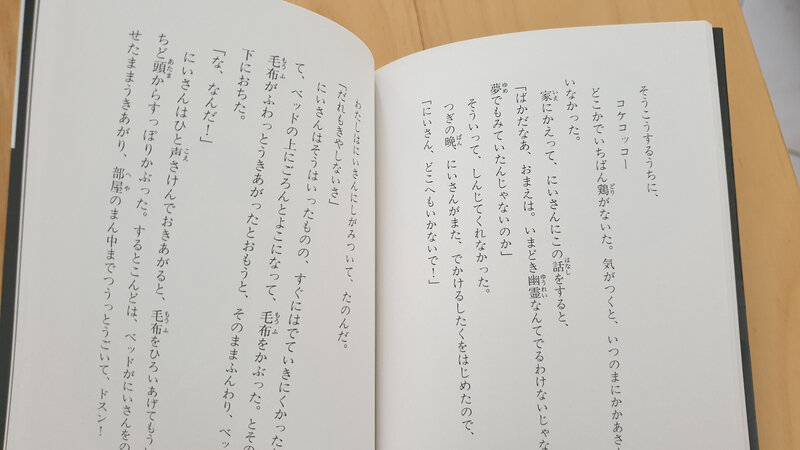 そうこうするうちに、
コケコッコー
どこかでいちばん鶏がないた。気がつくと、いつのまにかかあさ
いなかった。
家にかえって、にいさんにこの話をすると、
「ばかだなあ、おまえは。いまどき幽霊なんてでるわけないじゃな
夢でもみていたんじゃないのか」
そういって、しんじてくれなかった。
つぎの晩、にいさんがまた、でかけるしたくをはじめたので、
「にいさん、どこへもいかないで！」
わたしはにいさんにしがみついて、たのんだ。
「だれもきやしないさ」
にいさんはそうはいったものの、すぐにはでていきにくかった
て、ベッドの上にごろんとよこになって、毛布をかぶった。とその
毛布がふわっとうきあがったとおもうと、そのままふんわり、ベッ
下におちた。
「な、なんだ！」
にいさんはひと声さけんでおきあがると、毛布をひろいあげてもう
ちど頭からすっぽりかぶった。するとこんどは、ベッドがにいさんをの
せたままうきあがり、部屋のまん中までつうっとうごいて、ドスン！